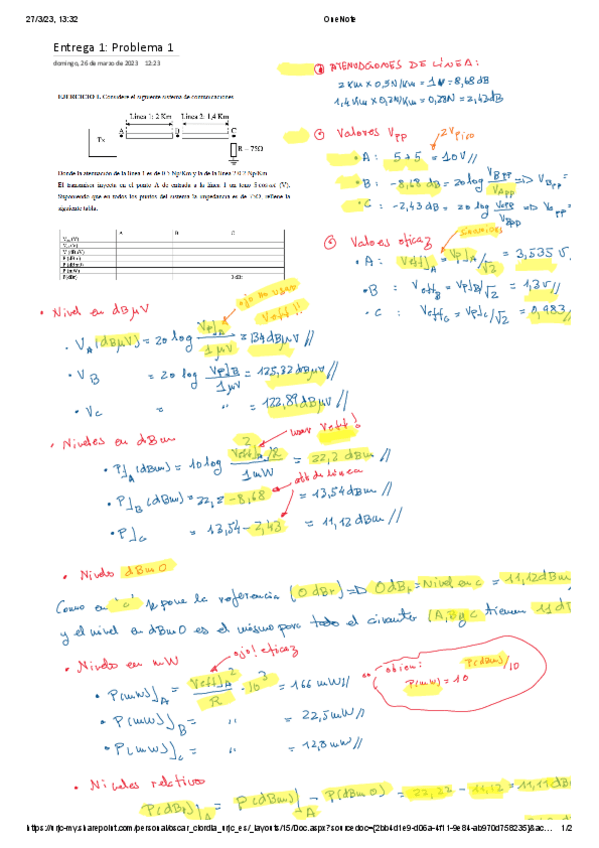 27/3/23, 13:32
OneNote
Entrega 1: Problema 1
domingo, 26 de marzo de 2023 12:23
EJERCICIO 1. Considere el siguiente sistema de comunicaciones
Línea 1: 2 Km Línea 2: 1,4 Km
Tx A B C
R = 75Ω
Donde la atenuación de la línea 1 es de 0.5 Np/Km y la de la línea 2 0.2 Np/Km
El transmisor inyecta en el punto A de entrada a la línea 1 un tono 5·cos(ωt) (V).
Suponiendo que en todos los puntos del sistema la impedancia es de 75Ω, rellene la
siguiente tabla.
A B C
0 dBr
ATENUACIONES DE LÍNEA:
2 Km x 0,5N/Km = 1N = 8,68 dB
1,4 Km x 0,2N/Km = 0,28N = 2,43dB
Valores Vpp
2Vpico
A: 5+5 = 10V//
B: -8,68 dB = 20 log VBpp/VApp => VBpp =
C: -2,43 dB = 20 log => V
Valores eficaz
A: Veff]A = Vp]A/√2 = 3,535 V
B: VeffB = Vp]B/√2 = 1,3V//
C: VeffC = Vp]C/√2 = 0,983/
Nivel en dBμV
ojo no usar Veff!!
VA(dBμV) = 20 log Vp]A/1μV = 134dBμV//
VB = 20 log Vp]B/1μV = 125,32dBμV//
VC = " = 122,89dBμV//
Niveles en dBm
usar Veff!
P]A(dBm) = 10 log Veff]A²/R/1mW = 22,2 dBm//
att de linea
P]B(dBm) = 22,2 -8,68 = 13,54dBm//
P]C = 13,54 - 2,43 = 11,12 dBm//
Niveles dBm0
Como en "c" se pone la referencia (0 dBr) => 0dBr = Nivel en c = 11,12dBm
y el nivel en dBm0 es el mismo para todo el circuito (A, B y C tienen 11
Niveles en mW
ojo! eficaz
P(mW)]A = Veff]A²/R · 10³ = 166 mW//
o bien:
P(mW) = 10 P(dBm)/10
P(mW)]B = " = 22,5mW//
P(mW)]C = " = 12,8mW//
Niveles relativos
P(dBr)]A = P(dBm)]A - P(dBm0) = 22,22 - 11,12 = 11,11dB
1/2